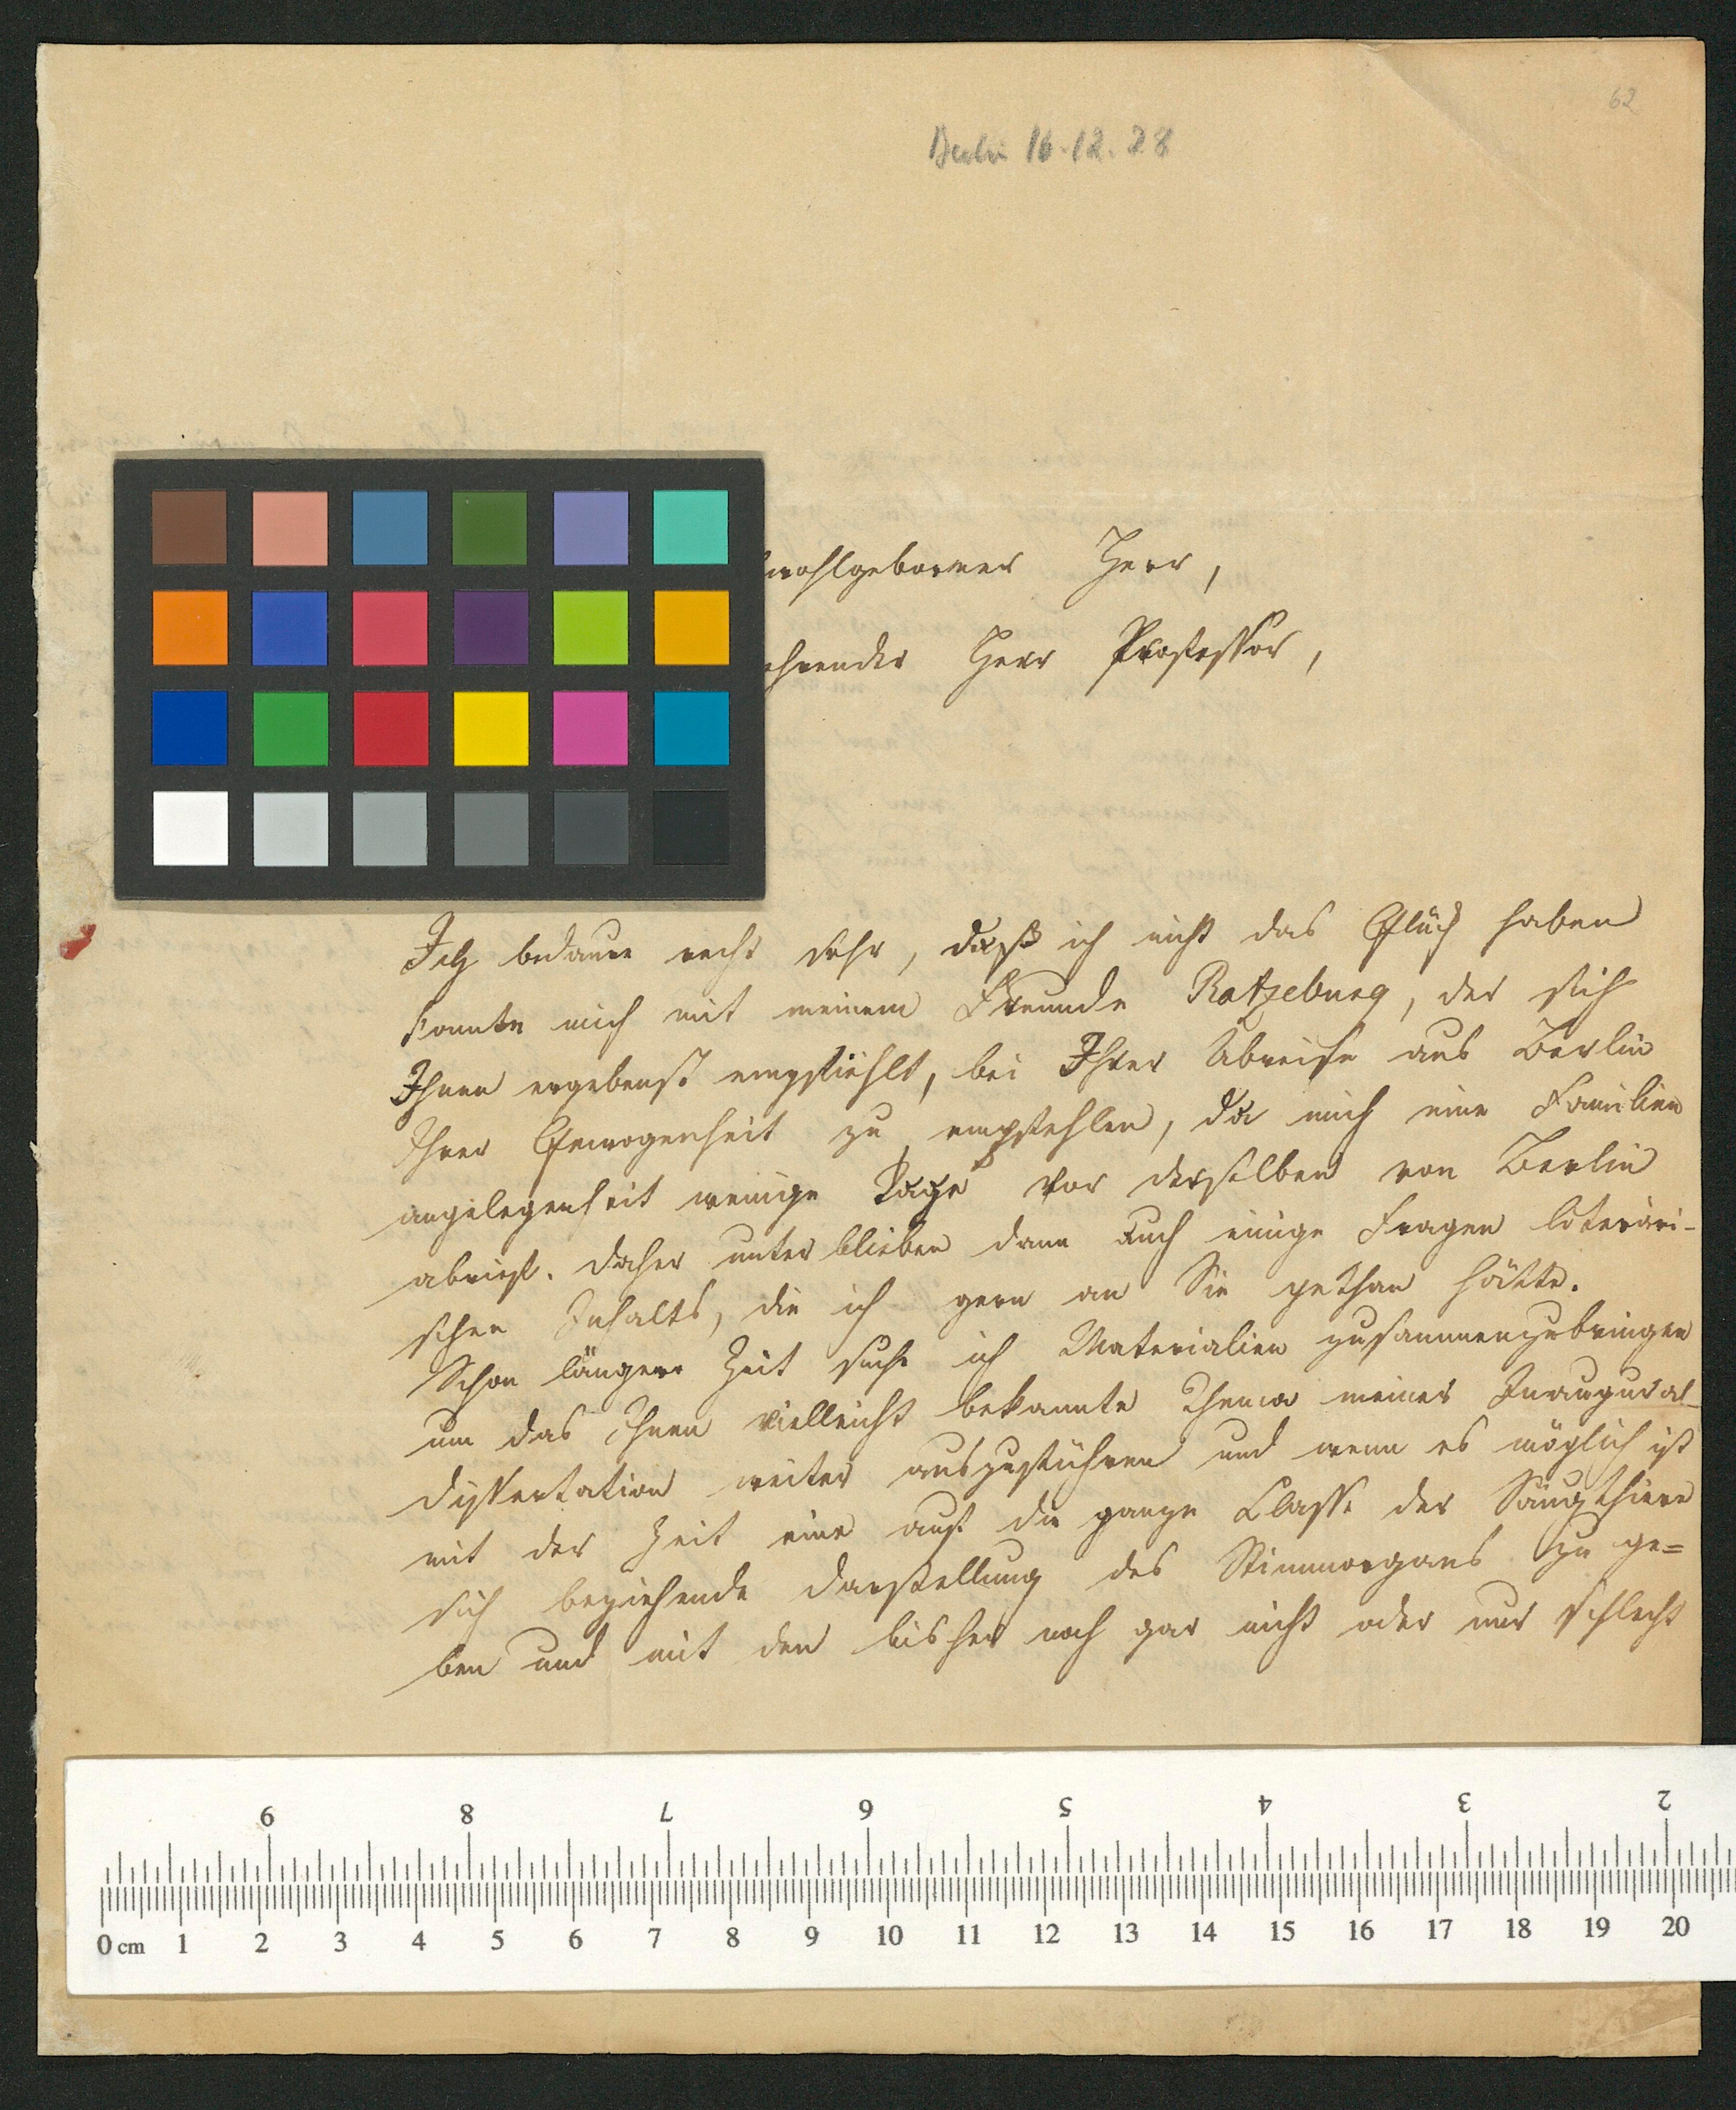 62
Berlin 16.12.28
wohlgeborner Herr,
ehrender Herr Professor,
Ich bedaure recht sehr, daß ich nicht das Glück haben
konnte mich mit meinem Freunde Ratzeburg, der sich
Ihnen ergebenst empfiehlt, bei Ihrer Abreise aus Berlin
Ihrer Gewogenheit zu empfehlen, da mich eine Familien
angelegenheit wenige Tage vor derselben von Berlin
abrief. Daher unterblieben dann auch einige Fragen literäri-
schen Inhalts, die ich gern an Sie gethan hätte.
Schon längere Zeit suche ich Materialien zusammenzubringen
um das Ihnen vielleicht bekannte Thema meiner Inaugural-
dissertation weiter auszuführen und wenn es möglich ist
mit der Zeit eine auf die ganze Classe der Säugthiere
sich beziehende Darstellung des Stimmorgans zu ge=
ben und mit den bisher noch gar nicht oder nur schlecht
9 8 7 6 5 4 3 2
0 cm 1 2 3 4 5 6 7 8 9 10 11 12 13 14 15 16 17 18 19 20